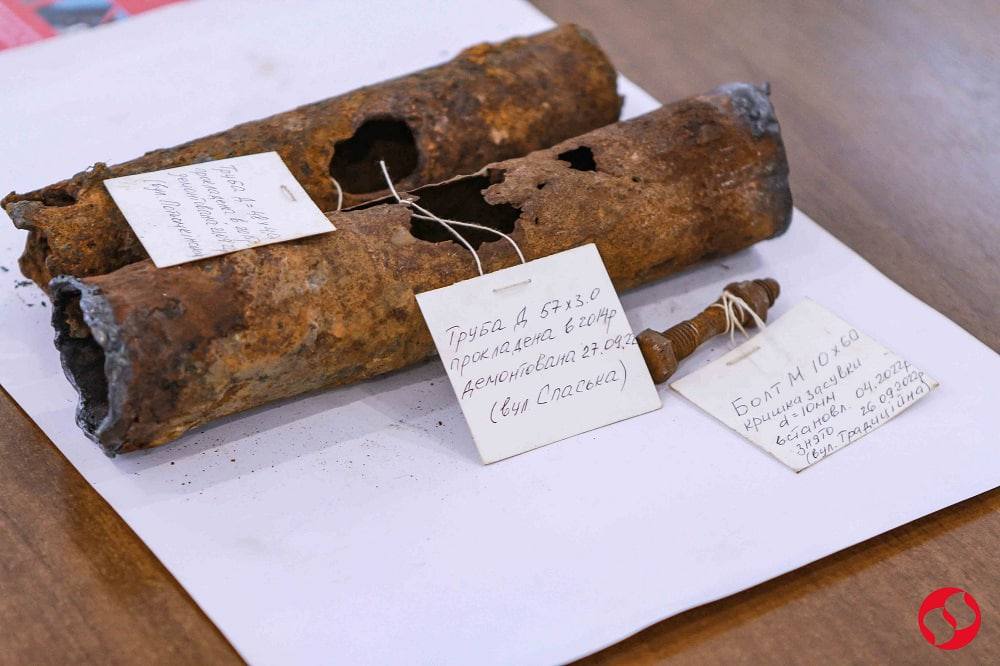 Труба д
прокладена в
Труба Д 57х3.0
прокладена в 2014р
демонтована 27.09.22
(вул Спаська)
Болт М 10х60
кришка засувки
d=10мм
встановл. 04.2022р
знято 26.09.2022р
(вул. Традиційна